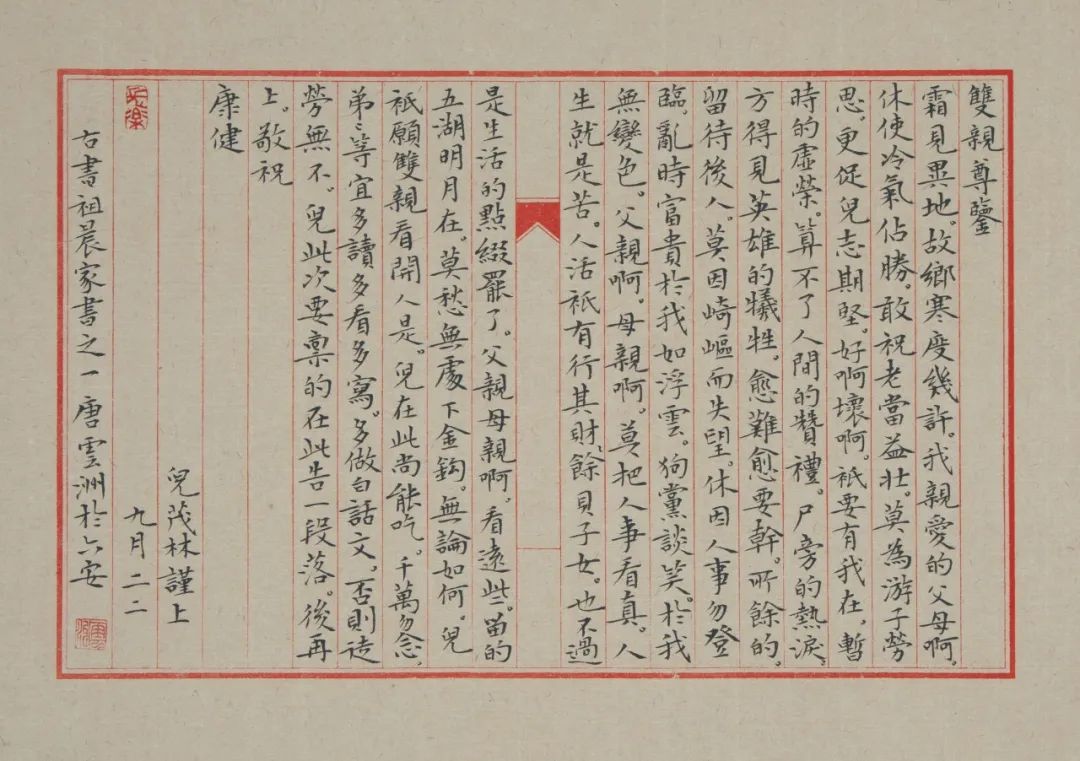 雙親尊鑒
霜見異地。故鄉寒度幾許。我親愛的父母啊。
休使冷氣佔勝。敢祝老當益壯。莫為游子勞
思。更促兒志期堅。好啊壞啊。衹要有我在。暫
時的虛榮。算不了人間的贊禮。尸旁的熱淚。
方得見英雄的犧牲。愈難愈要幹。所餘的。
留待後人。莫因崎嶇而失望。休因人事勿登
臨。亂時富貴於我如浮雲。狗黨談笑。於我
無變色。父親啊。母親啊。莫把人事看真。人
生就是苦。人活衹有行其財。餘貝子女。也不過
是生活的點綴罷了。父親母親啊。看遠些。留的
五湖明月在。莫愁無處下金鈎。無論如何。兒
衹願雙親看開人是。兒在此尚能吃。千萬勿念。
弟弟等宜多讀多看多寫。多做白話文。否則徒
勞無不。兒此次要稟的在此告一段落。後再
上。敬祝
康健
兒茂林謹上
九月二二
古書祖晨家書之一唐雲洲於六安